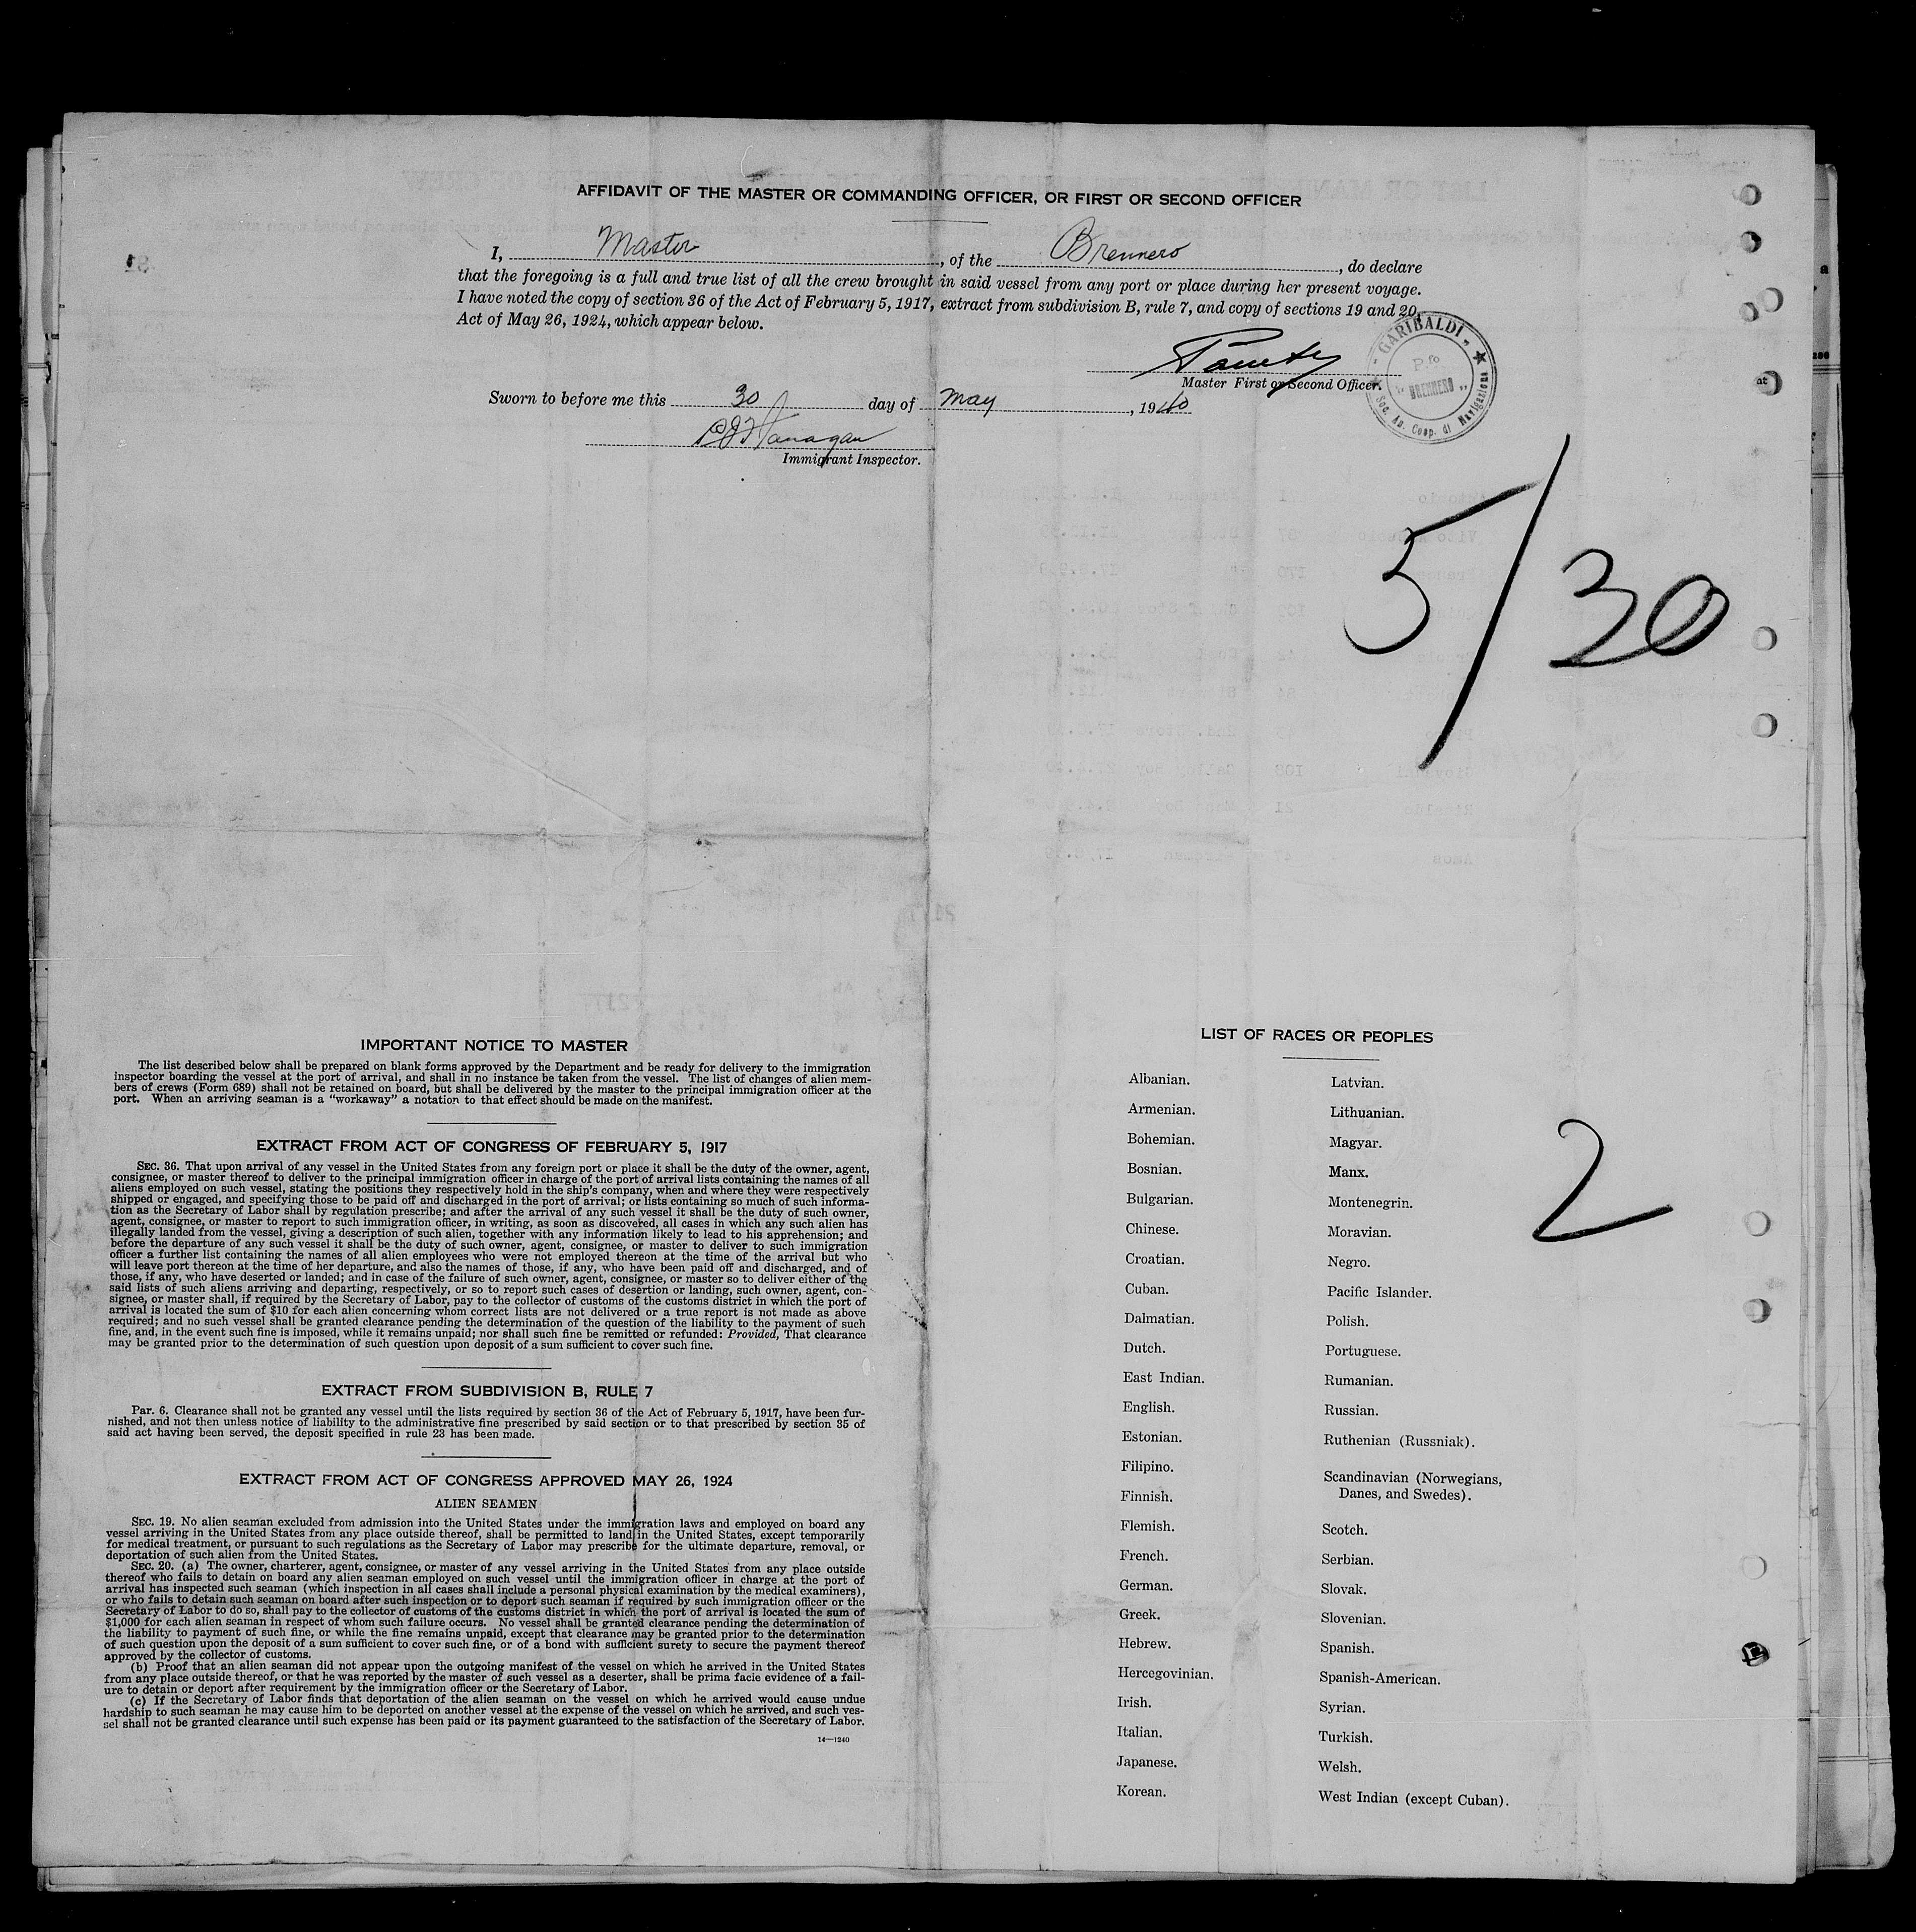 AFFIDAVIT OF THE MASTER OR COMMANDING OFFICER, OR FIRST OR SECOND OFFICER
I, Master, of the Brennero, do declare
that the foregoing is a full and true list of all the crew brought in said vessel from any port or place during her present voyage.
I have noted the copy of section 36 of the Act of February 5, 1917, extract from subdivision B, rule 7, and copy of sections 19 and 20,
Act of May 26, 1924, which appear below.
"GARIBALDI"
P.fo
"BRENNERO"
Soc. An. Coop. di Navigazione
Master First or Second Officer.
Sworn to before me this 30 day of May, 1940
Flanagan
Immigrant Inspector.
5/30
IMPORTANT NOTICE TO MASTER
The list described below shall be prepared on blank forms approved by the Department and be ready for delivery to the immigration
inspector boarding the vessel at the port of arrival, and shall in no instance be taken from the vessel. The list of changes of alien mem-
bers of crews (Form 689) shall not be retained on board, but shall be delivered by the master to the principal immigration officer at the
port. When an arriving seaman is a "workaway" a notation to that effect should be made on the manifest.
EXTRACT FROM ACT OF CONGRESS OF FEBRUARY 5, 1917
SEC. 36. That upon arrival of any vessel in the United States from any foreign port or place it shall be the duty of the owner, agent,
consignee, or master thereof to deliver to the principal immigration officer in charge of the port of arrival lists containing the names of all
aliens employed on such vessel, stating the positions they respectively hold in the ship's company, when and where they were respectively
shipped or engaged, and specifying those to be paid off and discharged in the port of arrival; or lists containing so much of such informa-
tion as the Secretary of Labor shall by regulation prescribe; and after the arrival of any such vessel it shall be the duty of such owner,
agent, consignee, or master to report to such immigration officer, in writing, as soon as discovered, all cases in which any such alien has
illegally landed from the vessel, giving a description of such alien, together with any information likely to lead to his apprehension; and
before the departure of any such vessel it shall be the duty of such owner, agent, consignee, or master to deliver to such immigration
officer a further list containing the names of all alien employees who were not employed thereon at the time of the arrival but who
will leave port thereon at the time of her departure, and also the names of those, if any, who have been paid off and discharged, and of
those, if any, who have deserted or landed; and in case of the failure of such owner, agent, consignee, or master so to deliver either of the
said lists of such aliens arriving and departing, respectively, or so to report such cases of desertion or landing, such owner, agent, con-
signee, or master shall, if required by the Secretary of Labor, pay to the collector of customs of the customs district in which the port of
arrival is located the sum of $10 for each alien concerning whom correct lists are not delivered or a true report is not made as above
required; and no such vessel shall be granted clearance pending the determination of the question of the liability to the payment of such
fine, and, in the event such fine is imposed, while it remains unpaid; nor shall such fine be remitted or refunded: Provided, That clearance
may be granted prior to the determination of such question upon deposit of a sum sufficient to cover such fine.
EXTRACT FROM SUBDIVISION B, RULE 7
Par. 6. Clearance shall not be granted any vessel until the lists required by section 36 of the Act of February 5, 1917, have been fur-
nished, and not then unless notice of liability to the administrative fine prescribed by said section or to that prescribed by section 35 of
said act having been served, the deposit specified in rule 23 has been made.
EXTRACT FROM ACT OF CONGRESS APPROVED MAY 26, 1924
ALIEN SEAMEN
SEC. 19. No alien seaman excluded from admission into the United States under the immigration laws and employed on board any
vessel arriving in the United States from any place outside thereof, shall be permitted to land in the United States, except temporarily
for medical treatment, or pursuant to such regulations as the Secretary of Labor may prescribe for the ultimate departure, removal, or
deportation of such alien from the United States.
SEC. 20. (a) The owner, charterer, agent, consignee, or master of any vessel arriving in the United States from any place outside
thereof who fails to detain on board any alien seaman employed on such vessel until the immigration officer in charge at the port of
arrival has inspected such seaman (which inspection in all cases shall include a personal physical examination by the medical examiners),
or who fails to detain such seaman on board after such inspection or to deport such seaman if required by such immigration officer or the
Secretary of Labor to do so, shall pay to the collector of customs of the customs district in which the port of arrival is located the sum of
$1,000 for each alien seaman in respect of whom such failure occurs. No vessel shall be granted clearance pending the determination of
the liability to payment of such fine, or while the fine remains unpaid, except that clearance may be granted prior to the determination
of such question upon the deposit of a sum sufficient to cover such fine, or of a bond with sufficient surety to secure the payment thereof
approved by the collector of customs.
(b) Proof that an alien seaman did not appear upon the outgoing manifest of the vessel on which he arrived in the United States
from any place outside thereof, or that he was reported by the master of such vessel as a deserter, shall be prima facie evidence of a fail-
ure to detain or deport after requirement by the immigration officer or the Secretary of Labor.
(c) If the Secretary of Labor finds that deportation of the alien seaman on the vessel on which he arrived would cause undue
hardship to such seaman he may cause him to be deported on another vessel at the expense of the vessel on which he arrived, and such ves-
sel shall not be granted clearance until such expense has been paid or its payment guaranteed to the satisfaction of the Secretary of Labor.
14—1240
LIST OF RACES OR PEOPLES
Albanian.
Armenian.
Bohemian.
Bosnian.
Bulgarian.
Chinese.
Croatian.
Cuban.
Dalmatian.
Dutch.
East Indian.
English.
Estonian.
Filipino.
Finnish.
Flemish.
French.
German.
Greek.
Hebrew.
Hercegovinian.
Irish.
Italian.
Japanese.
Korean.
Latvian.
Lithuanian.
Magyar.
Manx.
Montenegrin.
Moravian.
Negro.
Pacific Islander.
Polish.
Portuguese.
Rumanian.
Russian.
Ruthenian (Russniak).
Scandinavian (Norwegians,
Danes, and Swedes).
Scotch.
Serbian.
Slovak.
Slovenian.
Spanish.
Spanish-American.
Syrian.
Turkish.
Welsh.
West Indian (except Cuban).
2